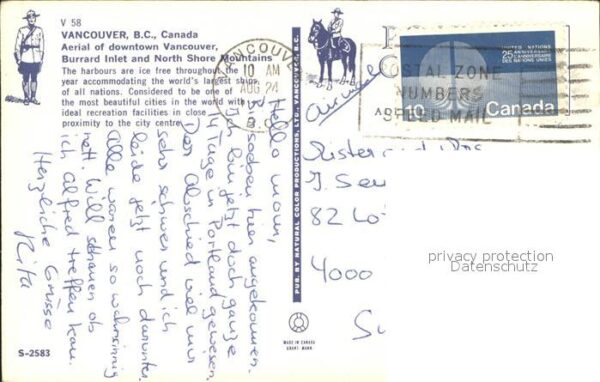 V 58
VANCOUVER, B.C., Canada
Aerial of downtown Vancouver,
Burrard Inlet and North Shore Mountains
The harbours are ice free throughout the
year accommodating the world's largest ships
of all nations. Considered to be one of
the most beautiful cities in the world with
ideal recreation facilities in close
proximity to the city centre.
S-2583
Hello moni,
soeben hier angekommen.
Ich bin jetzt doch ganze
14 Tage in Portland gewesen.
Der Abschied viel mir
sehr schwer und ich
leide jetzt noch darunter.
Alle waren so wahnsinnig
nett. Will schauen ob
ich Alfred treffen kan.
Herzliche Grüsse
Rita
PUB. BY NATURAL COLOR PRODUCTIONS, LTD., VANCOUVER, B.C.
MADE IN CANADA
VANCOUVER
10 AM
AUG 24
B.C.
POSTAL ZONE
NUMBERS
SPEED MAIL
UNITED NATIONS
25th ANNIVERSARY
25e ANNIVERSAIRE
DES NATIONS UNIES
10
Canada
air mail
82
4000
privacy protection
Datenschutz